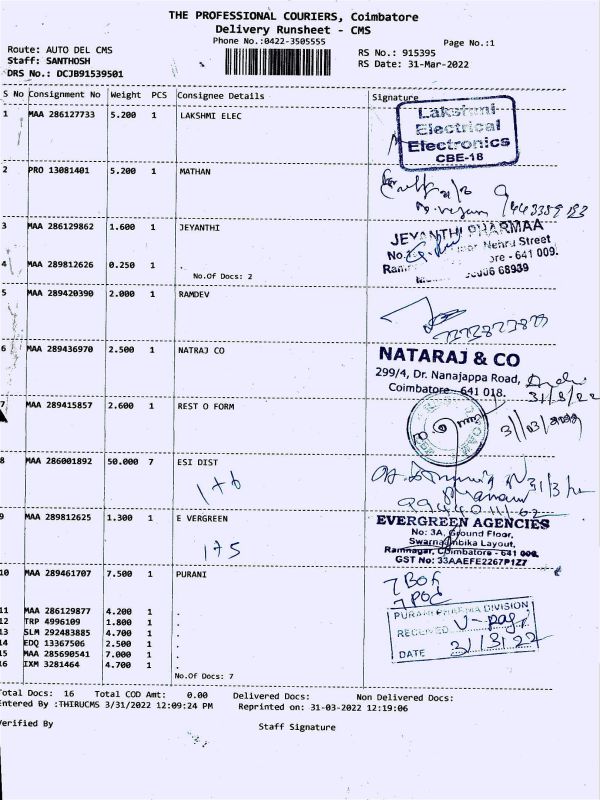 THE PROFESSIONAL COURIERS, Coimbatore
Delivery Runsheet - CMS
Phone No.:0422-3505555
Page No.:1
Route: AUTO DEL CMS
Staff: SANTHOSH
DRS No.: DCJB91539501
RS No.: 915395
RS Date: 31-Mar-2022
S No Consignment No Weight PCS Consignee Details Signature
1 MAA 286127733 5.200 1 LAKSHMI ELEC
Lakshmi
Electrical
Electronics
CBE-18
2 PRO 13081401 5.200 1 MATHAN
3 MAA 286129862 1.600 1 JEYANTHI
JEYANTHI PHARMAA
Nehru Street
641 009.
68939
4 MAA 289812626 0.250 1 .
No.Of Docs: 2
5 MAA 289420390 2.000 1 RAMDEV
6 MAA 289436970 2.500 1 NATRAJ CO
NATARAJ & CO
299/4, Dr. Nanajappa Road,
Coimbatore - 641 018.
31/3/22
7 MAA 289415857 2.600 1 REST O FORM
31/03/2022
8 MAA 286001892 50.000 7 ESI DIST
1+6
31/3/22
9 MAA 289812625 1.300 1 E VERGREEN
1+5
EVERGREEN AGENCIES
No: 3A, Ground Floor,
Swarnambika Layout,
Ramnagar, Coimbatore - 641 009.
GST No: 33AAEFE2267P1Z7
10 MAA 289461707 7.500 1 PURANI
7 BOX
7 POD
11 MAA 286129877 4.200 1 .
12 TRP 4996109 1.800 1 .
13 SLM 292483885 4.700 1 .
14 EDQ 13367506 2.500 1 .
15 MAA 285690541 7.000 1 .
16 IXM 3281464 4.700 1 .
No.Of Docs: 7
PURANI PHARMA DIVISION
RECEIVED
DATE 31/3/22
Total Docs: 16 Total COD Amt: 0.00 Delivered Docs: Non Delivered Docs:
Entered By :THIRUCMS 3/31/2022 12:09:24 PM Reprinted on: 31-03-2022 12:19:06
Verified By Staff Signature